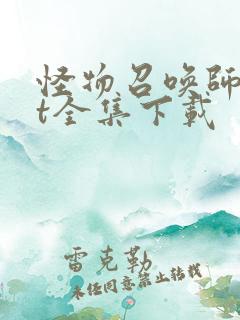 怪物召唤师
t全集下载
雷克勒
未经同意禁止转载